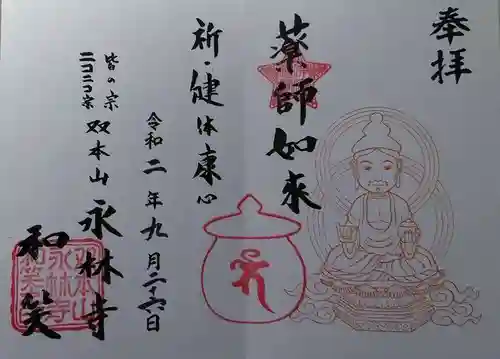 奉拝
薬師如来
祈・健体康心
令和二年九月二十六日
皆の宗
ニコニコ宗
双本山
永林寺
和笑
双本山
永林寺
和笑